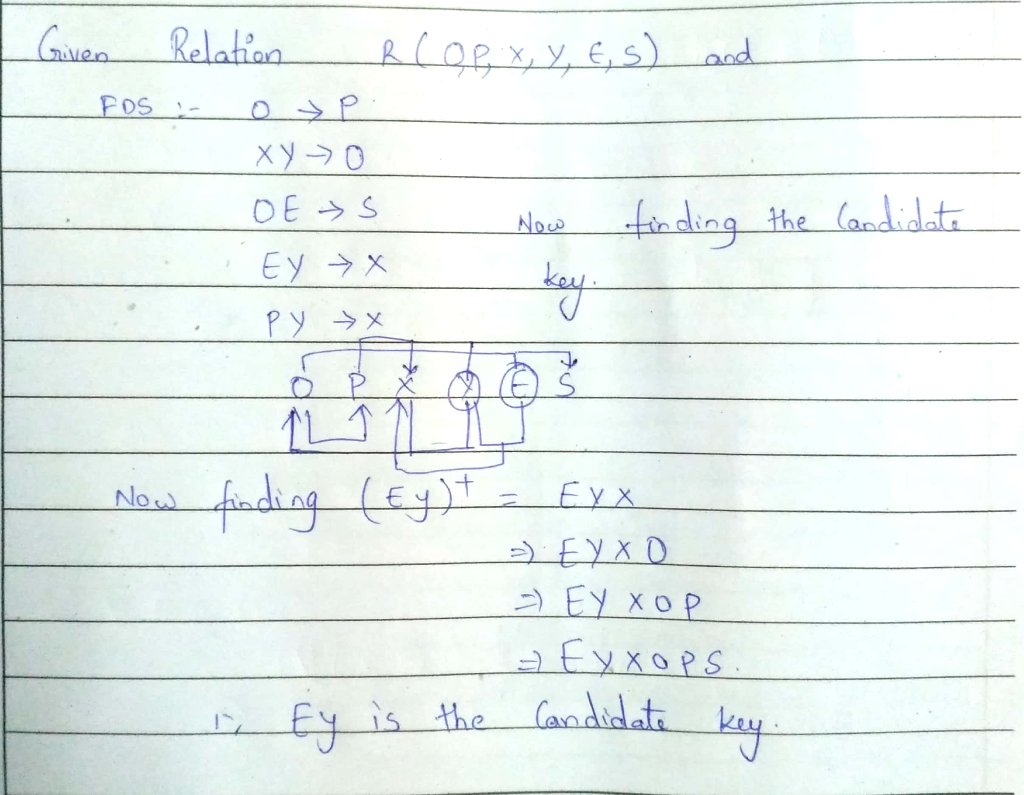 Given Relation R ( O,P, X, Y, E, S ) and
FDS :- O → P
XY → O
OE → S
Now finding the Candidate
EY → X
key.
PY → X
O P X Y E S
Now finding (EY)+ = EYX
⇒ EYXO
⇒ EYXOP
⇒ EYXOPS.
∴, EY is the Candidate key.